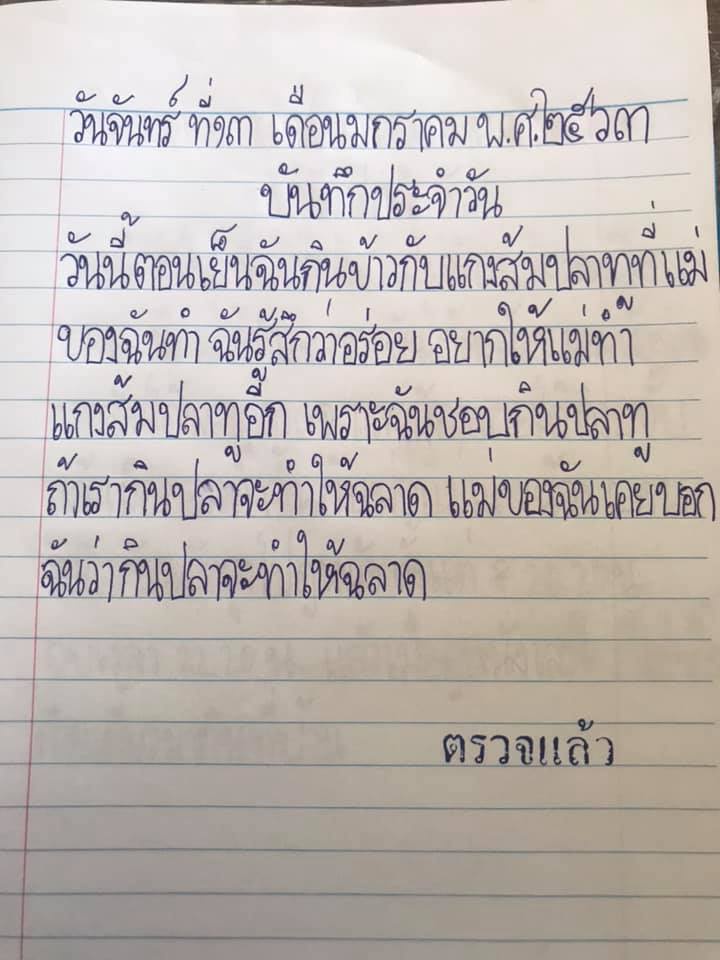 วันจันทร์ ที่๑๓ เดือนมกราคม พ.ศ.๒๕๖๓
บันทึกประจำวัน
วันนี้ตอนเย็นฉันกินข้าวกับแกงส้มปลาทูที่แม่
ของฉันทำ ฉันรู้สึกว่าอร่อย อยากให้แม่ทำ
แกงส้มปลาทูอีก เพราะฉันชอบกินปลาทู
ถ้าเรากินปลาจะทำให้ฉลาด แม่ของฉันเคยบอก
ฉันว่ากินปลาจะทำให้ฉลาด
ตรวจแล้ว